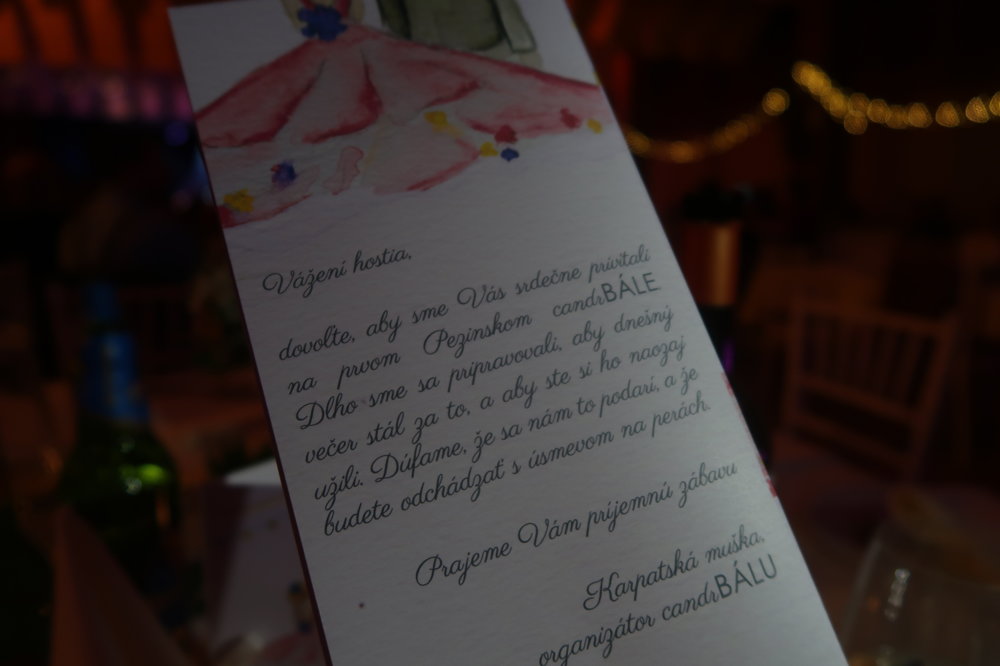 Vážení hostia,
dovoľte, aby sme Vás srdečne privítali
na prvom Pezinskom candrBÁLE.
Dlho sme sa pripravovali, aby dnešný
večer stál za to, a aby ste si ho naozaj
užili. Dúfame, že sa nám to podarí, a že
budete odchádzať s úsmevom na perách.
Prajeme Vám príjemnú zábavu
Karpatská muška,
organizátor candrBÁLU